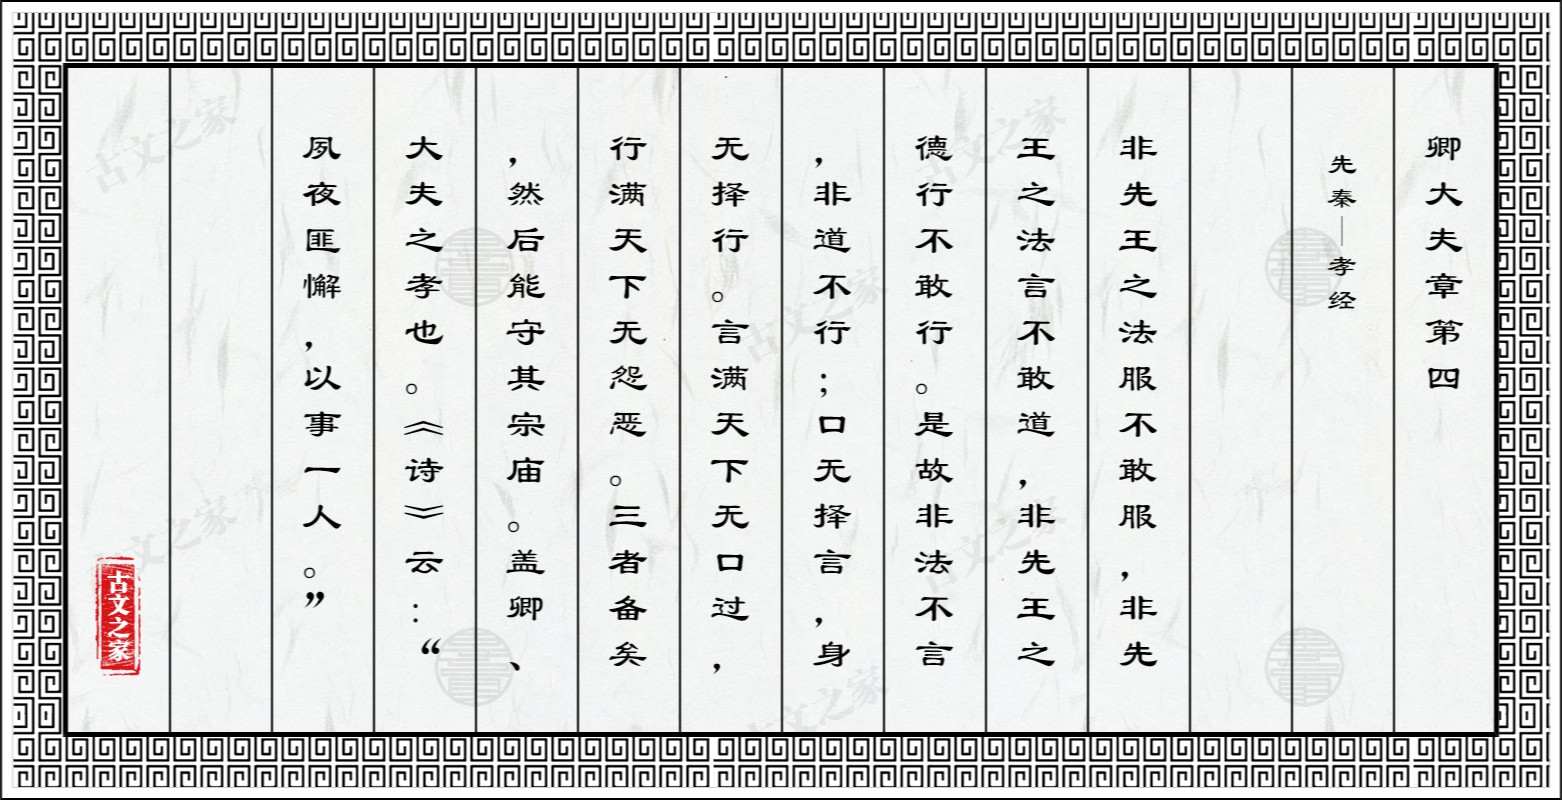 卿大夫章第四
先秦—孝经
非先王之法服不敢服，非先
王之法言不敢道，非先王之
德行不敢行。是故非法不言
，非道不行；口无择言，身
无择行。言满天下无口过，
行满天下无怨恶。三者备矣
，然后能守其宗庙。盖卿、
大夫之孝也。《诗》云：“
夙夜匪懈，以事一人。”
古文之家
古文之家
古文之家
古文之家
古文之家
古文之家
古文之家